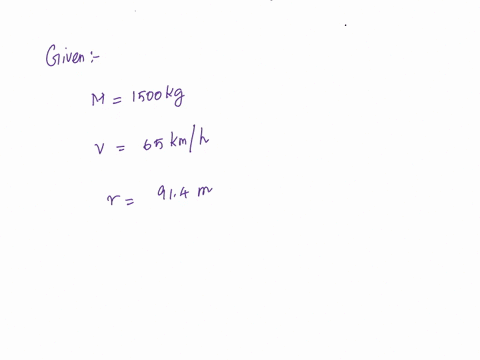 Given :-
M = 1500kg
v = 65 km/h
r = 91.4 m